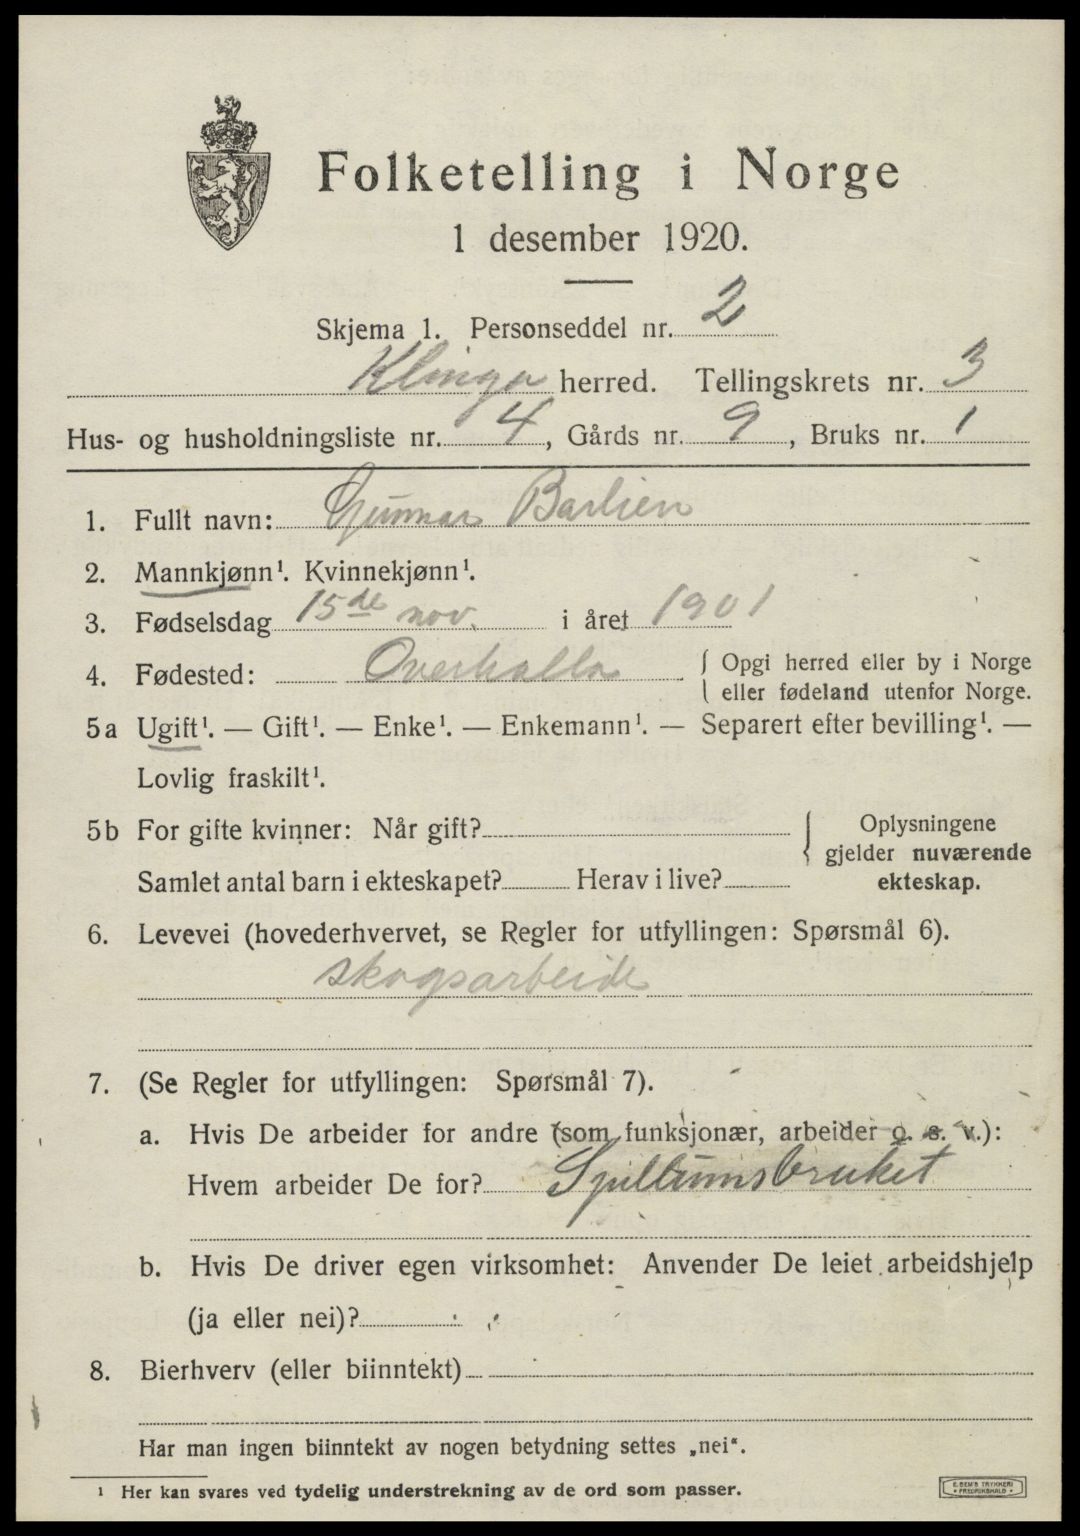 Folketelling i Norge
1 desember 1920.
Skjema 1. Personseddel nr. 2
Klinga herred. Tellingskrets nr. 3
Hus- og husholdningsliste nr. 4, Gårds nr. 9, Bruks nr. 1
1. Fullt navn: Gunnar Barlien
2. Mannkjønn¹. Kvinnekjønn¹.
3. Fødselsdag 15de nov. i året 1901
4. Fødested: Overhalla { Opgi herred eller by i Norge
eller fødeland utenfor Norge.
5a Ugift¹. — Gift¹. — Enke¹. — Enkemann¹. — Separert efter bevilling¹. —
Lovlig fraskilt¹.
5b For gifte kvinner: Når gift? { Oplysningene
gjelder nuværende
Samlet antal barn i ekteskapet? Herav i live? ekteskap.
6. Levevei (hovederhvervet, se Regler for utfyllingen: Spørsmål 6).
skogsarbeide
7. (Se Regler for utfyllingen: Spørsmål 7).
a. Hvis De arbeider for andre (som funksjonær, arbeider o. s. v.):
Hvem arbeider De for? Spillumsbruket
b. Hvis De driver egen virksomhet: Anvender De leiet arbeidshjelp
(ja eller nei)?
8. Bierhverv (eller biinntekt)
Har man ingen biinntekt av nogen betydning settes „nei“.
¹ Her kan svares ved tydelig understrekning av de ord som passer.
E. SEM'S TRYKKERI
FREDRIKSHALD